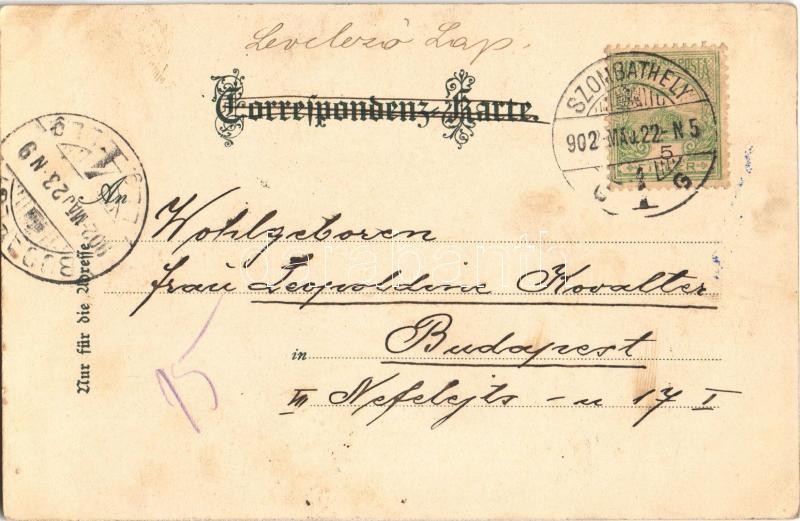 Levelező Lap.
Correspondenz-Karte.
POSTA
SZOMBATHELY
902 MÁJ. 22 - N 5
5
An
902 MÁJ 23 N 9
Wohlgeboren
frau Leopoldine Kovalter
in Budapest
Nefelejts - u 17 I
Nur für die Adresse
15